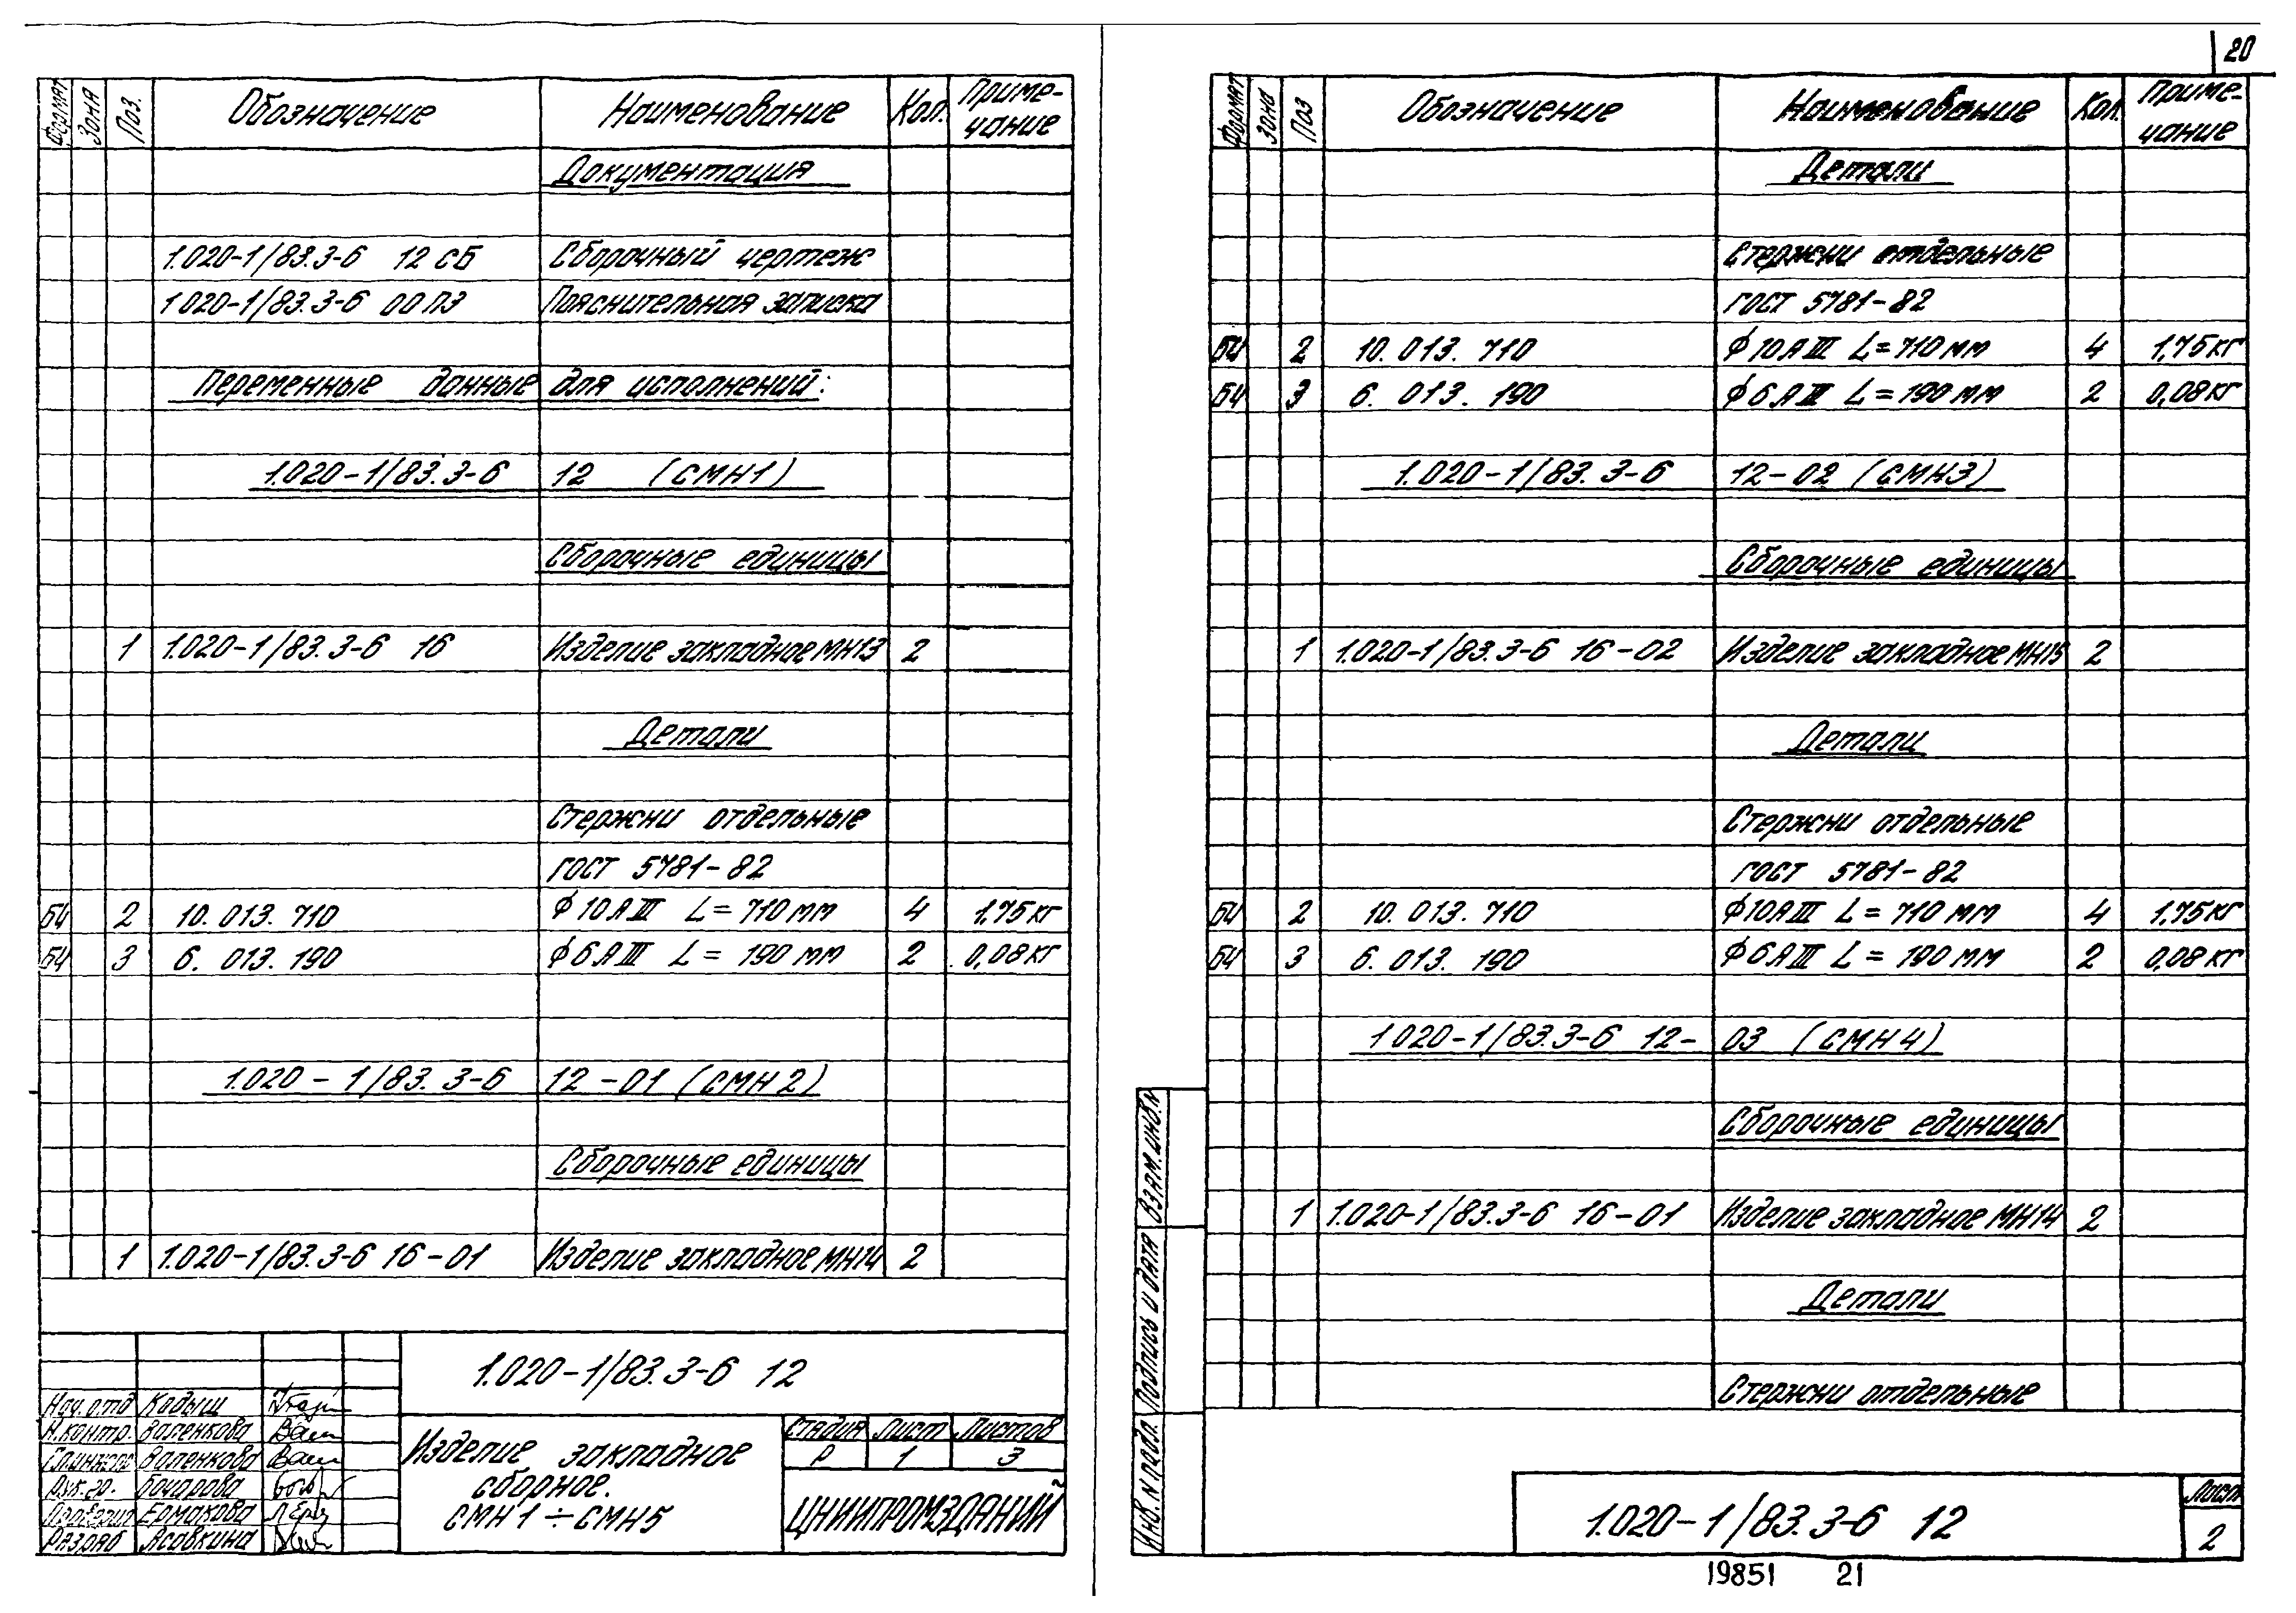 20
Формат Зона Поз. Обозначение Наименование Кол. Приме-
чание
Документация
1.020-1/83.3-6 12 СБ Сборочный чертеж
1 020-1/83.3-6 00 ПЗ Пояснительная записка
Переменные данные для исполнений:
1.020-1/83.3-6 12 (СМН1)
Сборочные единицы
1 1.020-1/83.3-6 16 Изделие закладное МН13 2
Детали
Стержни отдельные
ГОСТ 5781-82
БЧ 2 10. 013. 710 ф10АIII L= 710 мм 4 1,75кг
БЧ 3 6. 013. 190 ф6АIII L= 190 мм 2 0,08кг
1.020-1/83.3-6 12-01 (СМН2)
Сборочные единицы
1 1.020-1/83.3-6 16-01 Изделие закладное МН14 2
1.020-1/83.3-6 12
Нач.отд Кадыш
Н.контр. Валенкова
Валенкова
Рук.гр. Бочарова
Проверил Ермакова
Разраб Асавкина
Изделие закладное
сборное.
СМН1÷СМН5
Стадия Лист Листов
Р 1 3
ЦНИИПРОМЗДАНИЙ
Формат Зона Поз Обозначение Наименование Кол. Приме-
чание
Детали
Стержни отдельные
ГОСТ 5781-82
БЧ 2 10. 013. 710 ф10АIII L=710 мм 4 1,75кг
БЧ 3 6. 013. 190 ф6АIII L=190 мм 2 0,08кг
1.020-1/83.3-6 12-02 (СМН3)
Сборочные единицы
1 1.020-1/83.3-6 16-02 Изделие закладное МН15 2
Детали
Стержни отдельные
ГОСТ 5781-82
БЧ 2 10. 013. 710 ф10АIII L= 710 мм 4 1,75кг
БЧ 3 6. 013. 190 ф6АIII L= 190 мм 2 0,08 кг
1.020-1/83.3-6 12-03 (СМН4)
Сборочные единицы
1 1.020-1/83.3-6 16-01 Изделие закладное МН14 2
Детали
Стержни отдельные
Инв. N подл. Подпись и дата Взам. инв. N
1.020-1/83.3-6 12
Лист
2
19851 21